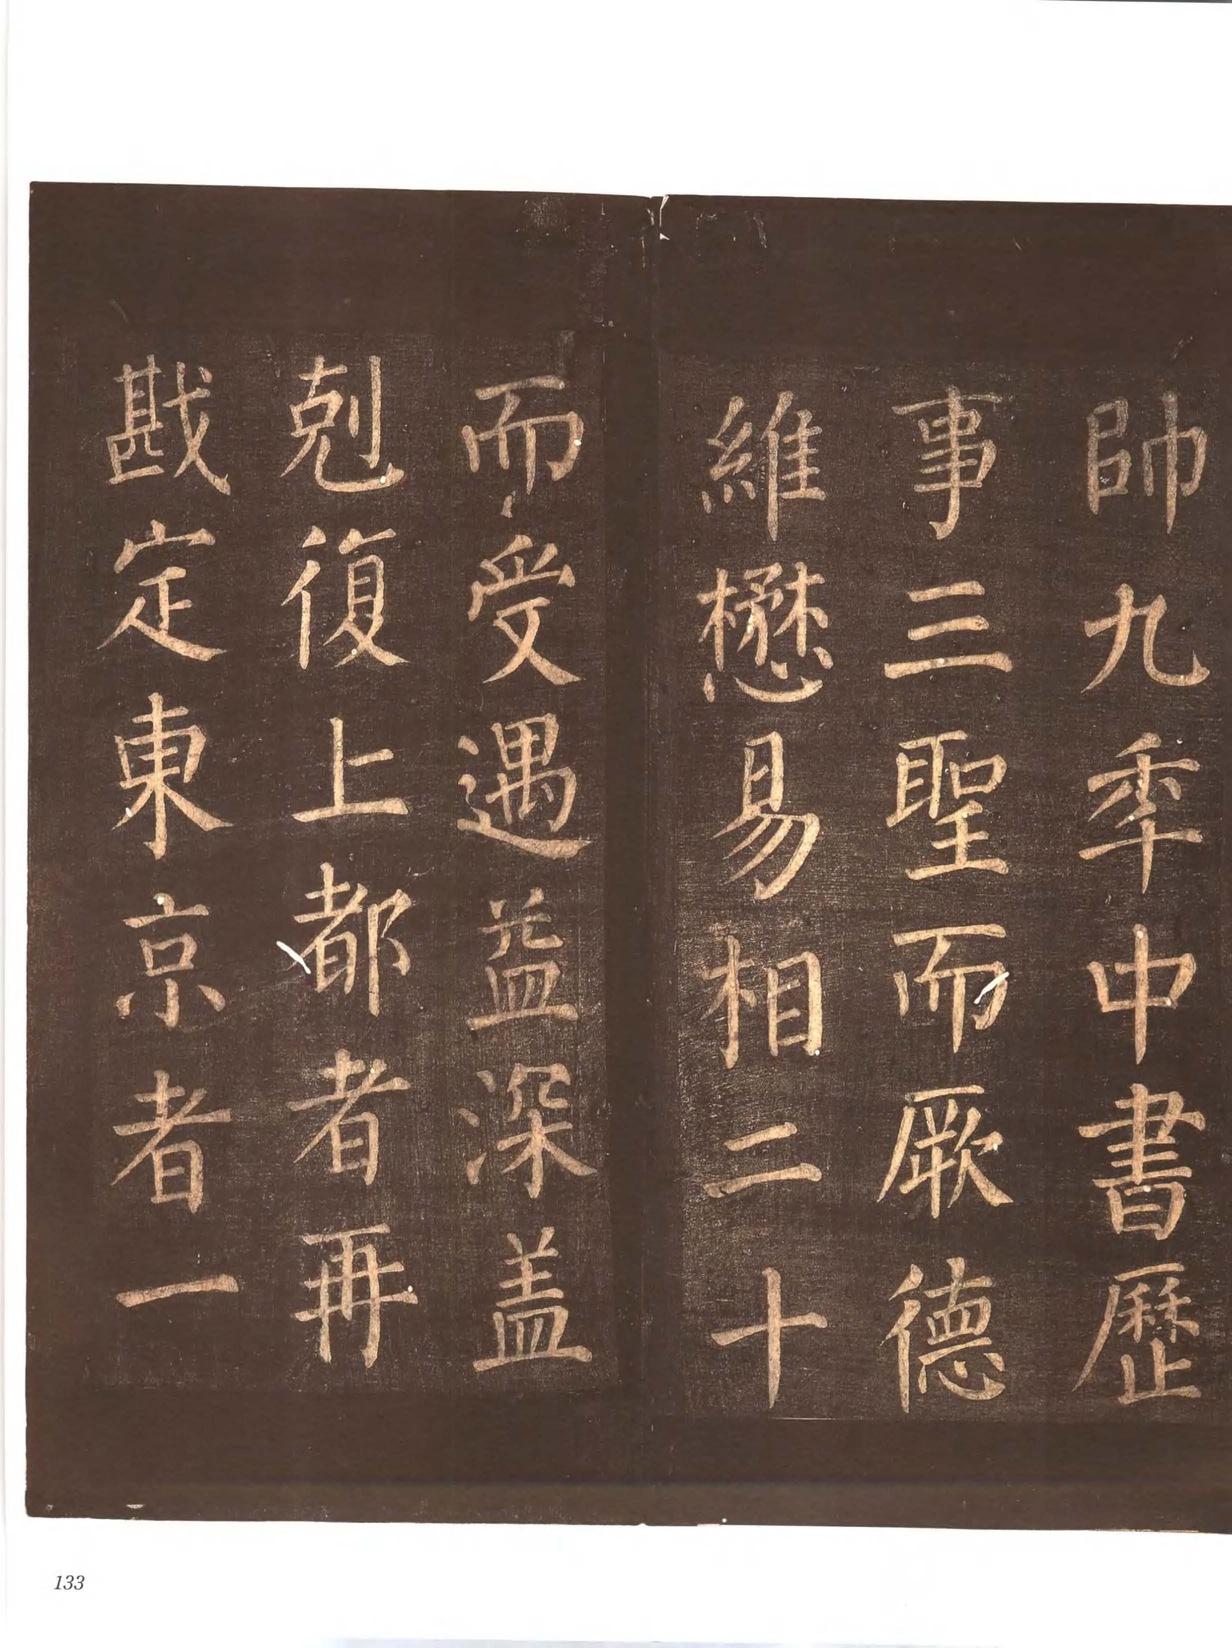 帥九秊中書歷
事三聖而厥德
維懋易相二十
而受遇益深盖
剋復上都者再
戡定東京者一
133